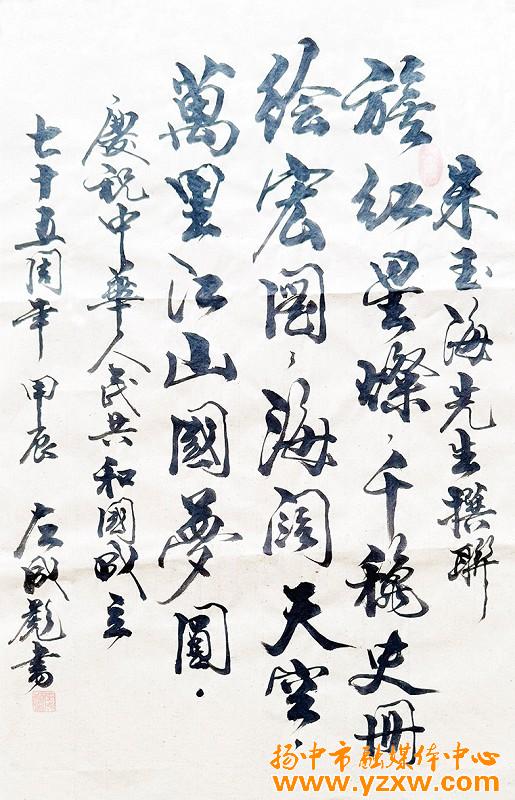 朱玉海先生撰聯
旗红星燦，千穐史冊
绘宏图，海阔天空，
萬里江山國夢圓。
慶祝中華人民共和國成立
七十五周年 甲辰 左成彪書
扬中市融媒体中心
www.yzxw.com